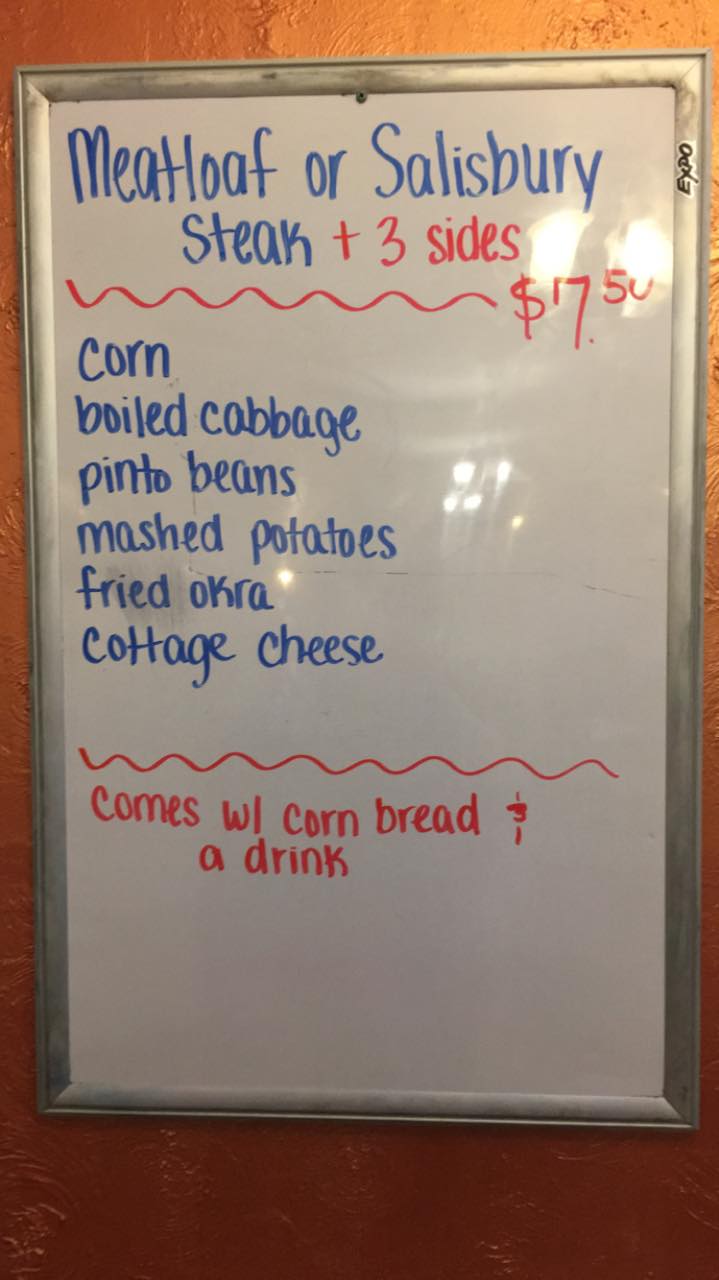 Meatloaf or Salisbury
Steak + 3 sides
$7.50
corn
boiled cabbage
pinto beans
mashed potatoes
fried okra
cottage cheese
comes w/ corn bread &
a drink
EXPO